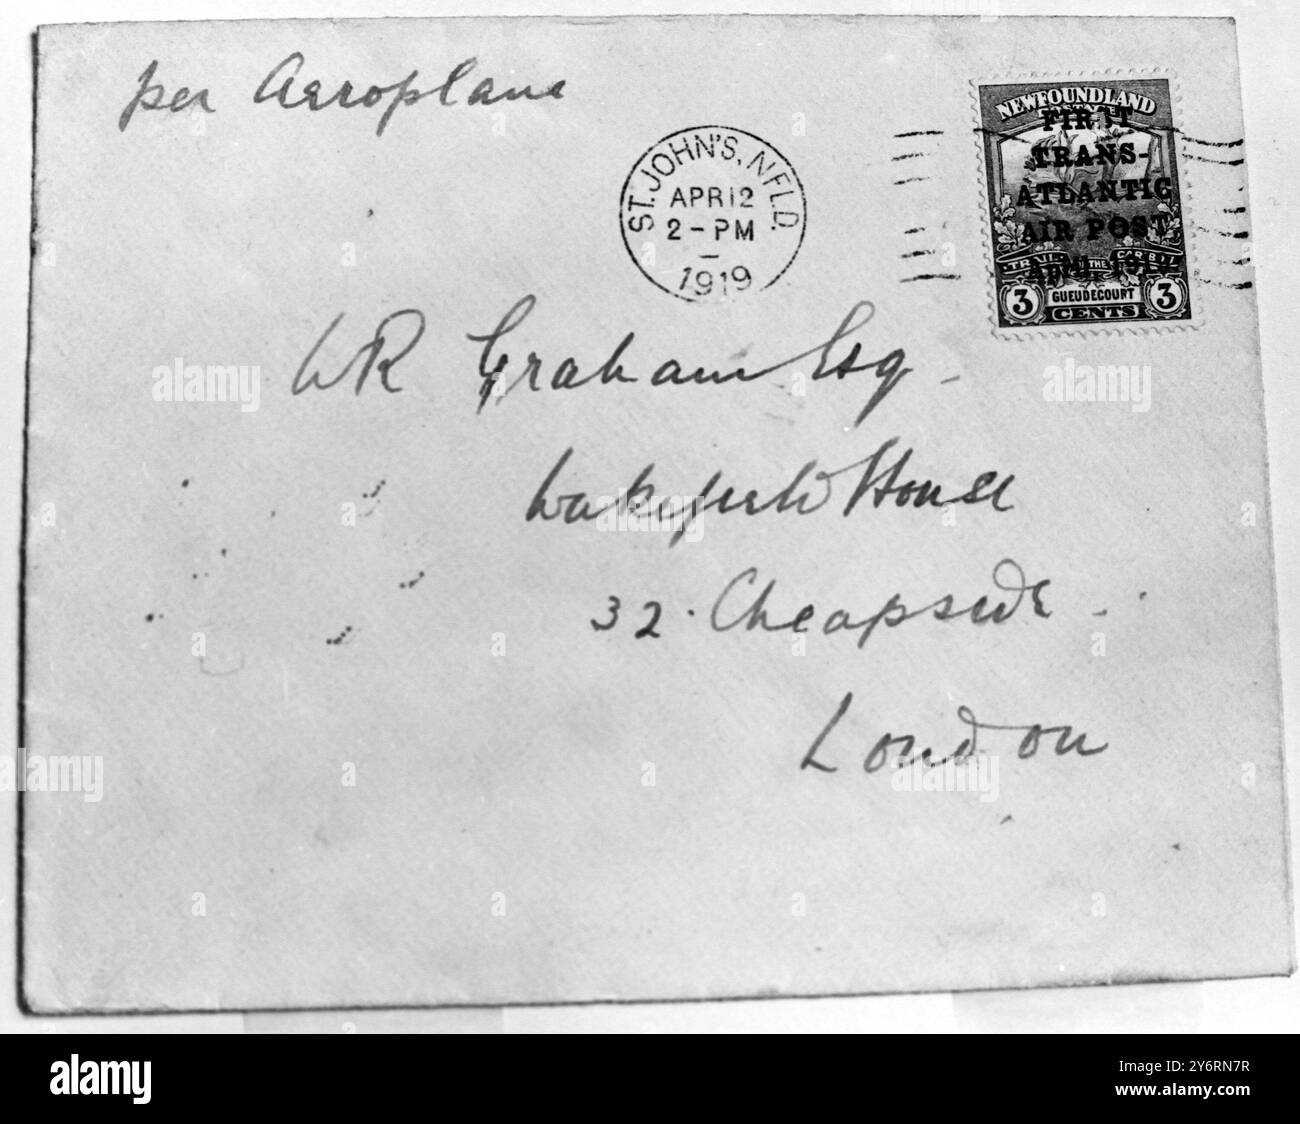 per Aeroplane
ST. JOHN'S, NFLD.
APR 12
2-PM
1919
NEWFOUNDLAND
POSTAGE
FIRST
TRANS-
ATLANTIC
AIR POST,
April, 1919
TRAIL OF THE CARIBOU
3 GUEUDECOURT 3
CENTS
WR Graham Esq
Wakefield House
32. Cheapside
London
alamy
Image ID: 2Y6RN7R
www.alamy.com